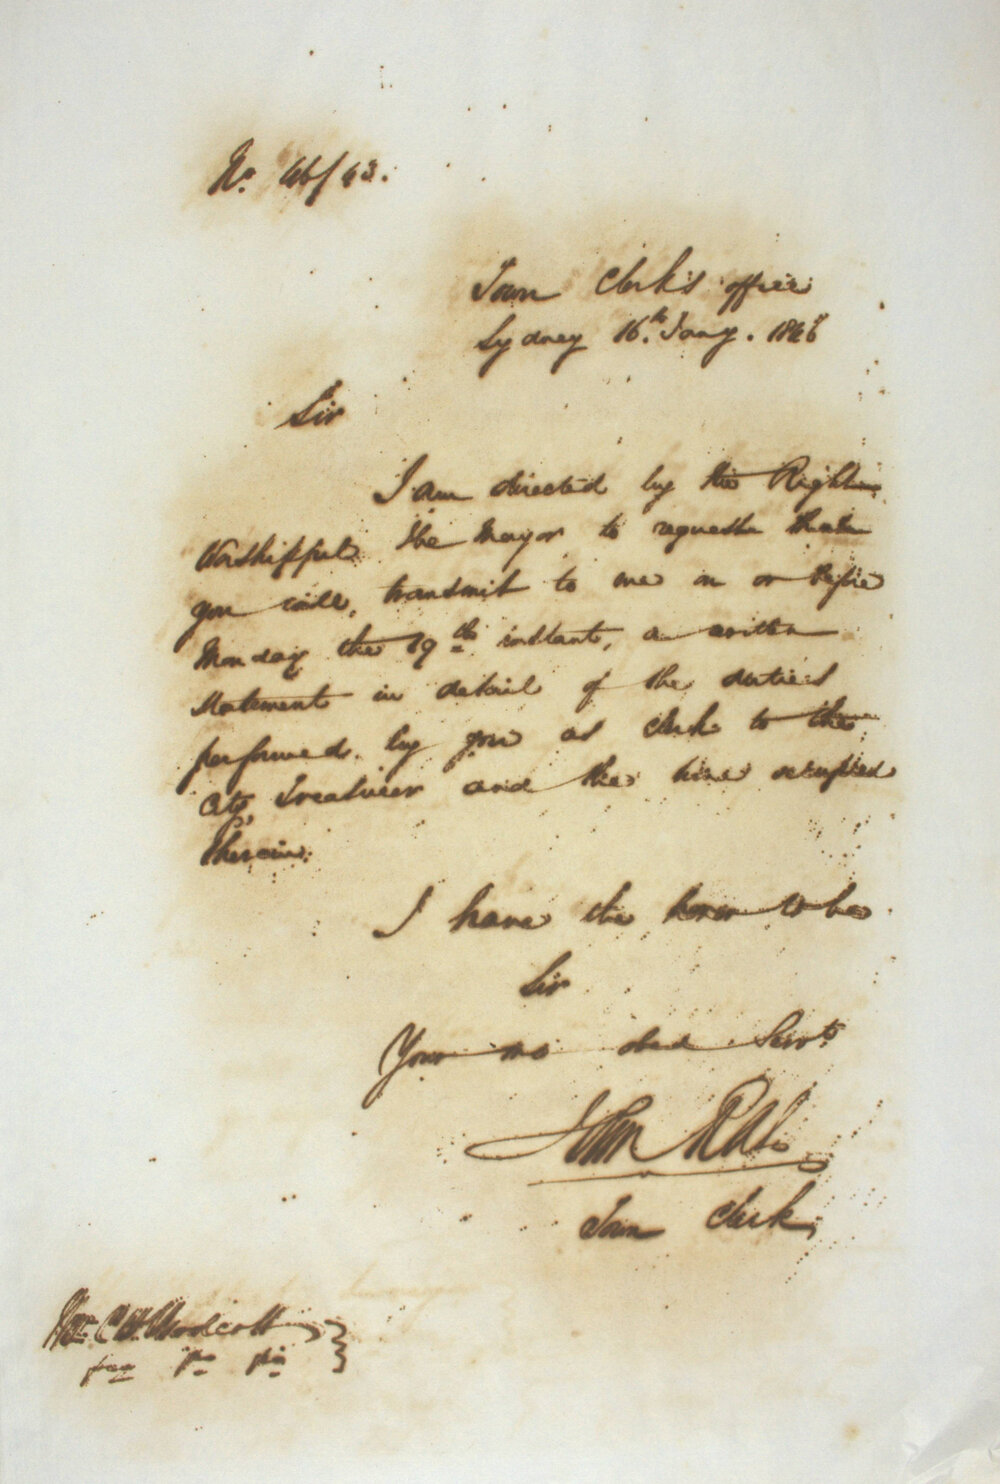 No. 46/43.
Town Clerk's office
Sydney 16th. Jany. 1846
Sir
I am directed by the Right
Worshipful the Mayor to request that
you will, transmit to me on or before
Monday the 19th instant, a written
Statement in detail of the duties
performed by you as Clerk to the
City Treasurer and the time occupied
therein.
I have the honor to be
Sir
Your mo obed Servt.
John
Town Clerk
C H Woodcott